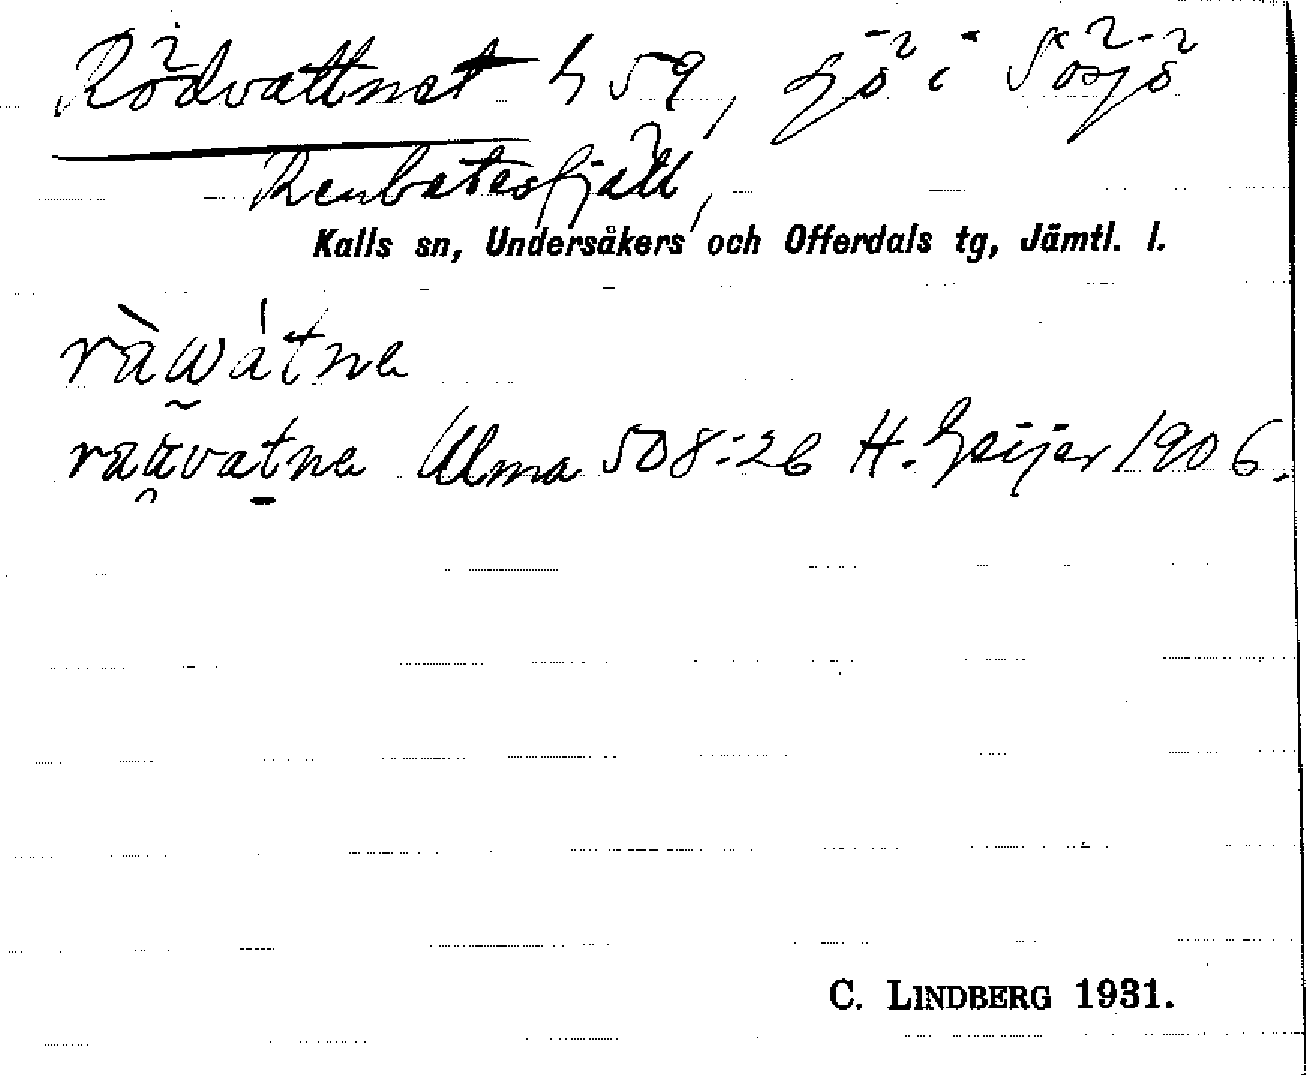 Rödvattnet h 59, sjö i Sösjö
Renbetesfjäll,
Kalls sn, Undersåkers och Offerdals tg, Jämtl. l.
ràwátne
raüvatne Ulma 508:26 H. Geijer 1906.
C. LINDBERG 1931.